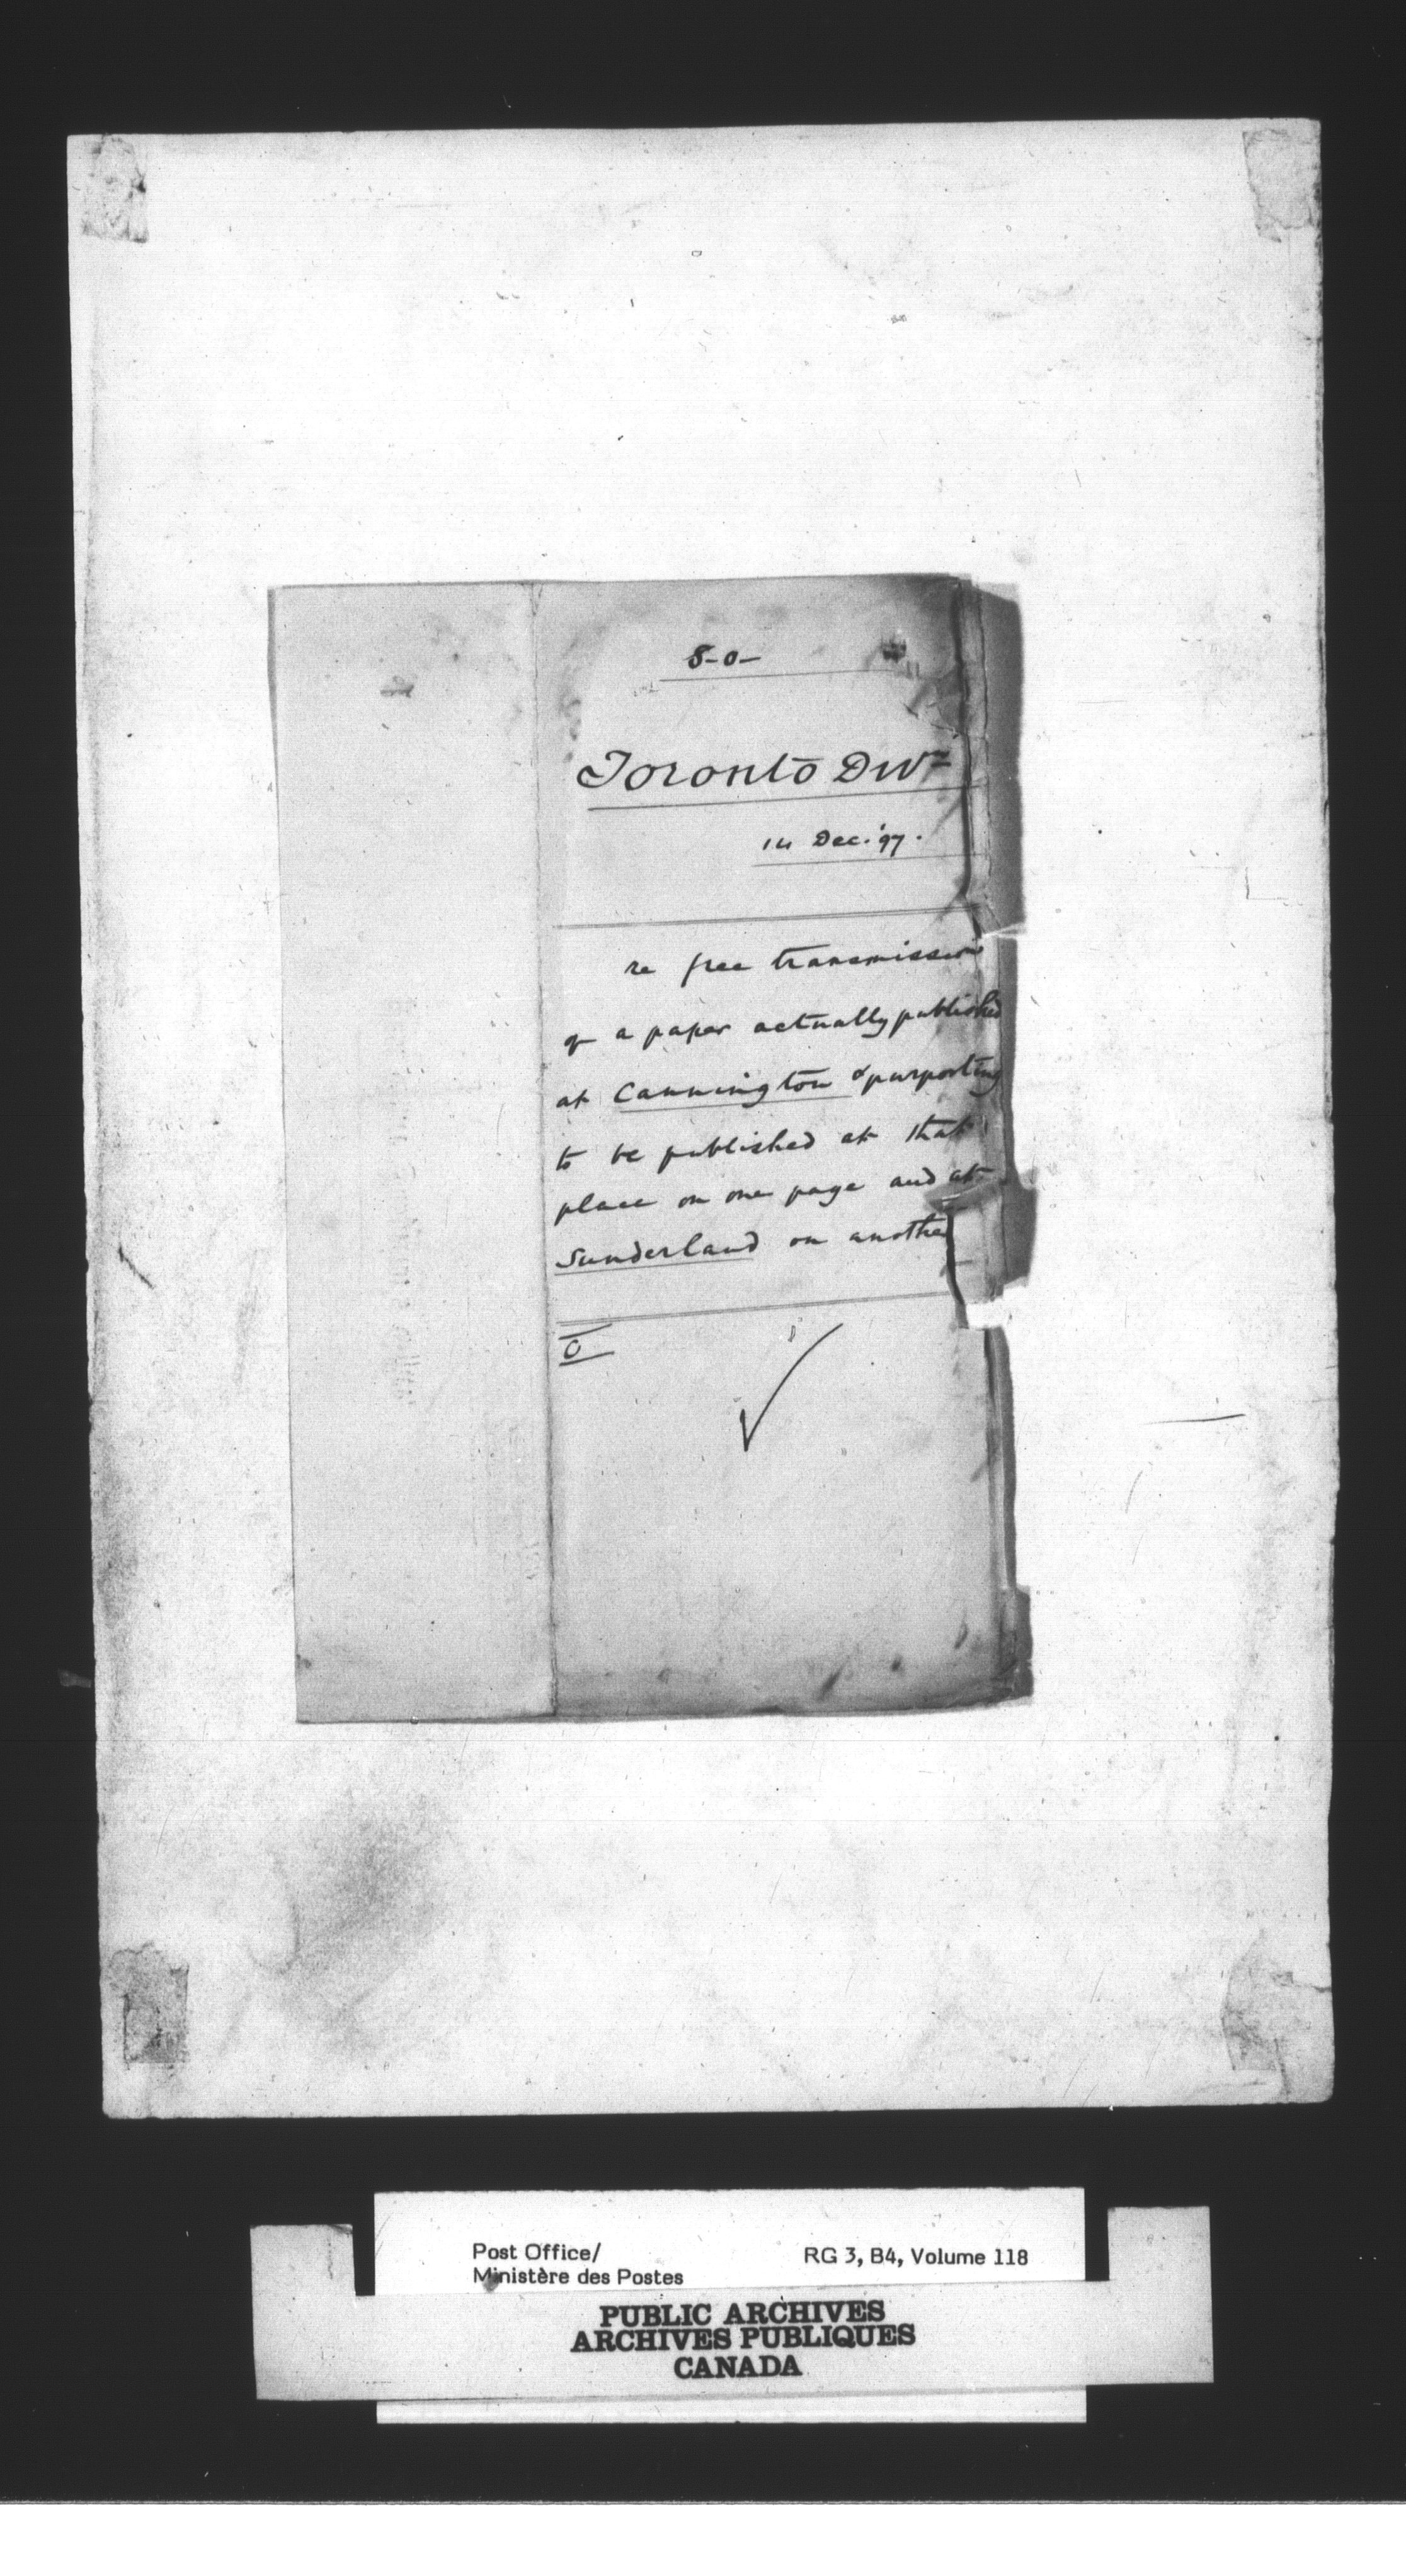 8-0-
Toronto Divn
14 Dec. '97.
re free transmission
of a paper actually published
at Cannington & purporting
to be published at that
place on one page and at
Sunderland on another
O
Post Office/
Ministère des Postes
RG 3, B4, Volume 118
PUBLIC ARCHIVES
ARCHIVES PUBLIQUES
CANADA